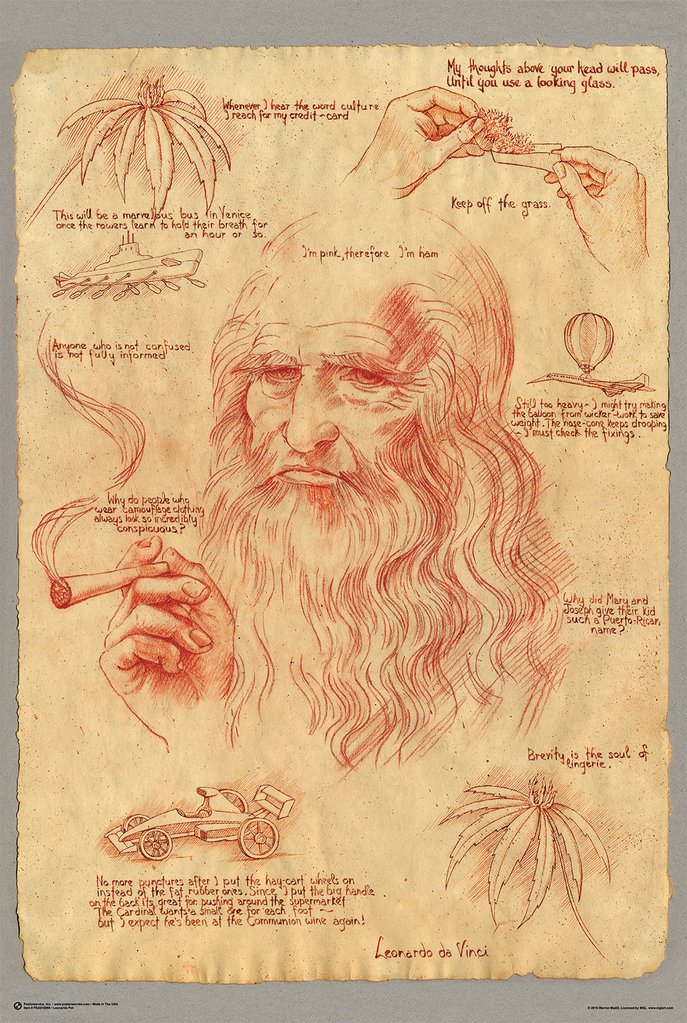 My thoughts above your head will pass,
Until you use a looking glass.
Whenever I hear the word culture
I reach for my credit-card
Keep off the grass.
This will be a marvelous bus in Venice
once the rowers learn to hold their breath for
an hour or so.
I'm pink, therefore I'm ham
Anyone who is not confused
is not fully informed
Still too heavy - I might try making
the balloon from wicker-work to save
weight. The nose-cone keeps drooping
- I must check the fixings.
Why do people who
wear camouflage clothing
always look so incredibly
conspicuous?
Why did Mary and
Joseph give their kid
such a Puerto-Rican
name?
Brevity is the soul of
lingerie.
No more punctures after I put the hay-cart wheels on
instead of the fat rubber ones. Since I put the big handle
on the back its great for pushing around the supermarket
The Cardinal wants a small one for each foot -
but I expect he's been at the Communion wine again!
Leonardo da Vinci
Posterservice, Inc. • www.posterservice.com • Made In The USA
- Leonardo Pot
© 2010 Warren Madill, Licensed by MGL. www.mglart.com